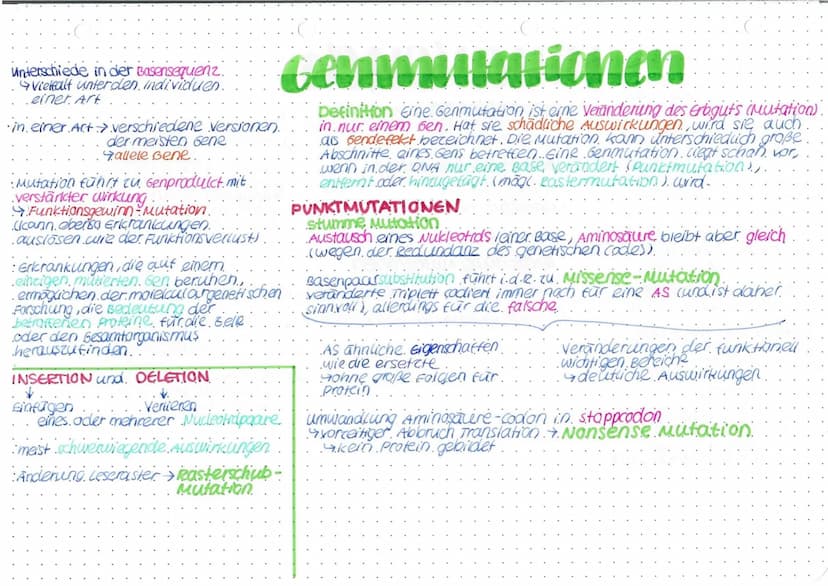 Genmutationen
Unterschiede in der Basensequenz
↳ Vielfalt unter den Individuen
einer Art
· in einer Art → verschiedene Versionen
der meisten Gene
↳ allele Gene
· Mutation führt zu Genprodukt mit
verstärkter Wirkung
↳ Funktionsgewinn-Mutation
(kann ebenso Erkrankungen
auslösen wie der Funktionsverlust)
· Erkrankungen, die auf einem
einzigen mutierten Gen beruhen,
ermöglichen der molekulargenetischen
Forschung, die Bedeutung der
betroffenen Proteine für die Zelle
oder den Gesamtorganismus
herauszufinden.
INSERTION und DELETION
↓ ↓
Einfügen Verlieren
eines oder mehrerer Nucleotidpaare
· meist schwerwiegende Auswirkungen
· Änderung Leseraster → Rasterschub-
Mutation
Definition Eine Genmutation ist eine Veränderung des Erbguts (Mutation)
in nur einem Gen. Hat sie schädliche Auswirkungen, wird sie auch
als Gendefekt bezeichnet. Die Mutation kann unterschiedlich große
Abschnitte eines Gens betreffen. Eine Genmutation liegt schon vor,
wenn in der DNA nur eine Base verändert (Punktmutation),
entfernt oder hinzugefügt (mögl. Rastermutation) wird.
PUNKTMUTATIONEN
Stumme Mutation
Austausch eines Nukleotids (einer Base, Aminosäure bleibt aber gleich
(wegen der Redundanz des genetischen Codes).
Basenpaarsubstitution führt i.d.R. zu Missense-Mutation
verändertes Triplett codiert immer noch für eine AS (und ist daher
sinnvoll), allerdings für die falsche.
AS ähnliche Eigenschaften
wie die ersetzte
↳ ohne große Folgen für
Protein
Veränderungen der funktionell
wichtigen Bereiche
↳ deutliche Auswirkungen
Umwandlung Aminosäure-Codon in Stoppcodon
↳ vorzeitiger Abbruch Translation → Nonsense Mutation
↳ kein Protein gebildet